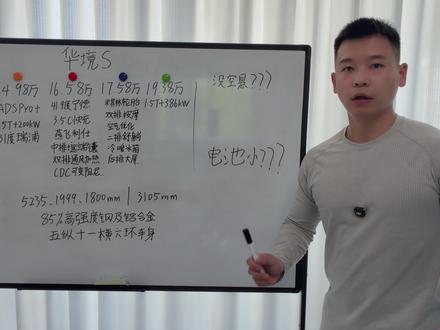 华境S
4.98万
ADSPro+
.5T+200kW
31度瑞浦
16.58万
41度宁德
3.5C快充
燕飞利仕
双排通风加热
CDC可变阻尼
17.58万
米其林轮胎
双排按摩
空气优化
二排舒躺
冷暖冰箱
后排大屏
19.38万
1.5T+386kW
没空悬???
电池小???
5235、1999、1800mm | 3105mm
85%高强度钢及铝合金
五纵十一横六环车身